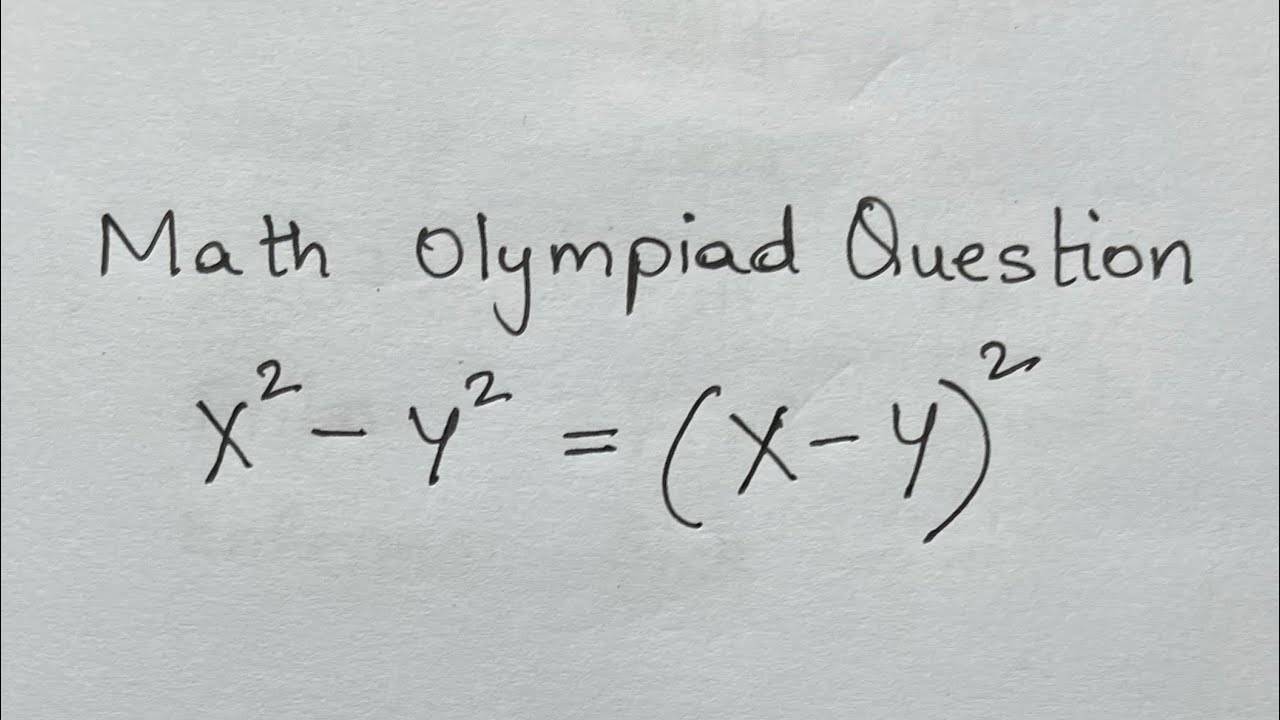 Math Olympiad Question
x² - y² = (x - y)²